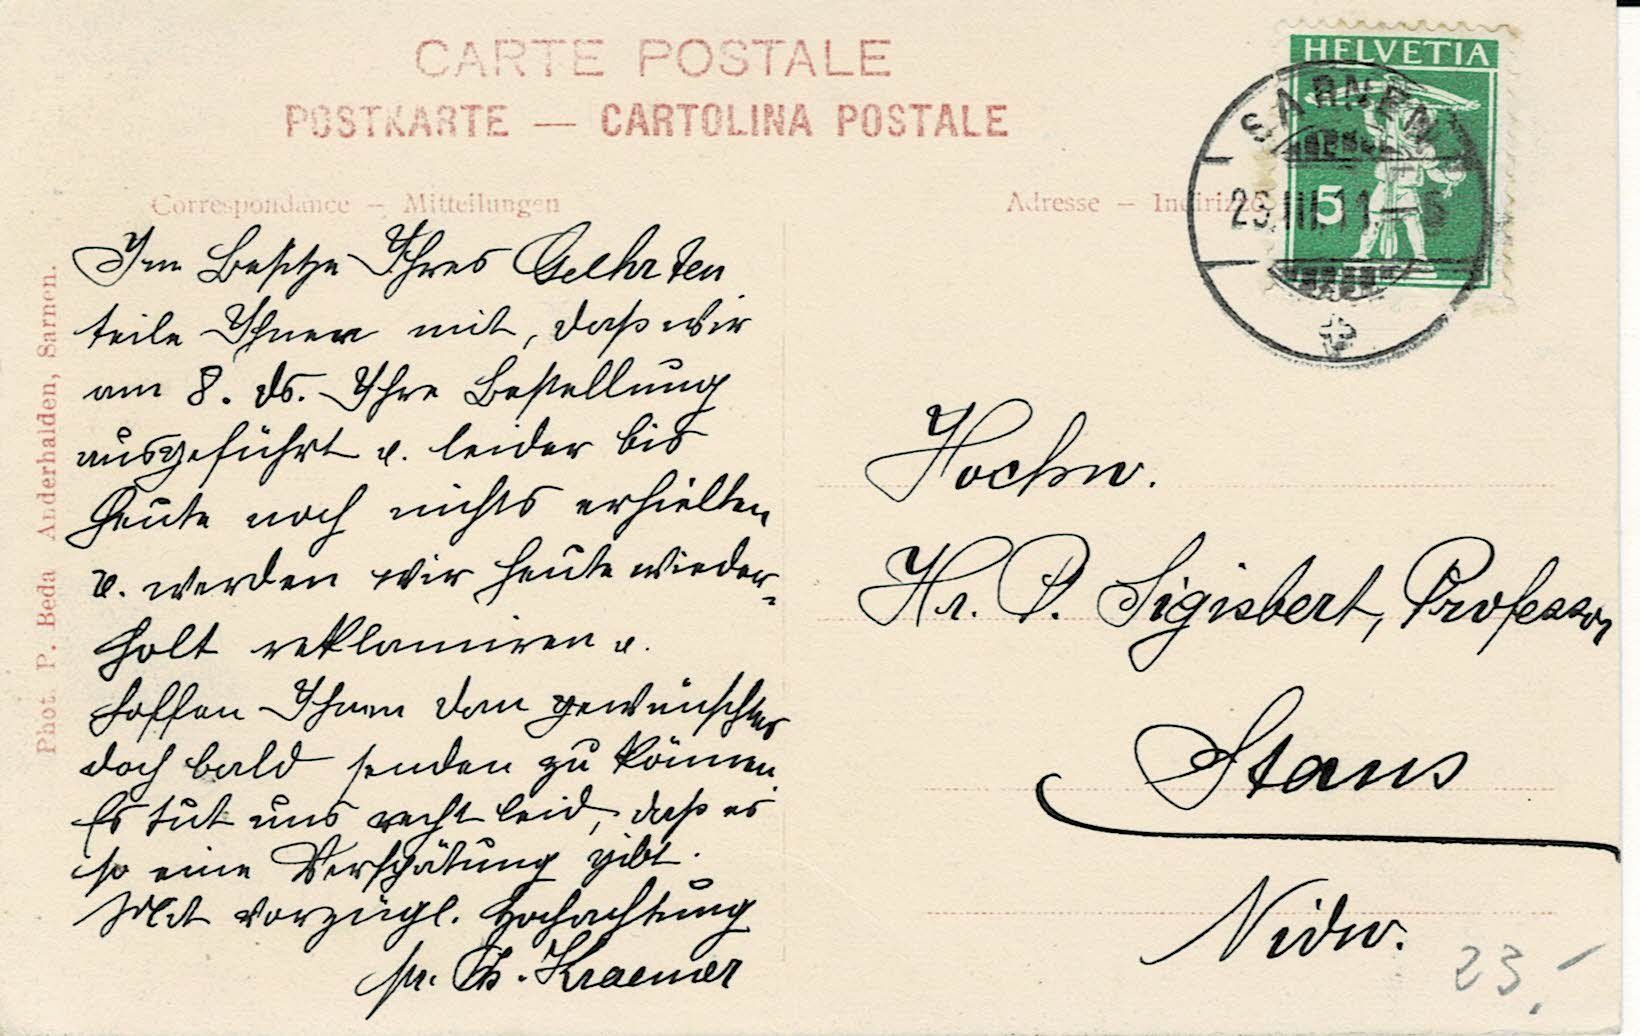 CARTE POSTALE
POSTKARTE — CARTOLINA POSTALE
Correspondance — Mitteilungen
Adresse — Indirizzo
HELVETIA
5
SARNEN
III.11
Phot. P. Beda Anderhalden, Sarnen.
Im Besitze Ihres Geehrten
teile Ihnen mit, daß wir
am 8. ds. Ihre Bestellung
ausgeführt u. leider bis
heute noch nichts erhielten
u. werden wir heute wieder-
holt reklamiren u.
hoffen Ihnen den gewünschten
doch bald senden zu können.
Es tut uns recht leid, daß es
so eine Verspätung gibt.
Mit vorzügl. Hochachtung
pr. Th. Kraemer
Hochw.
Hr. P. Sigisbert, Professor
Stans
Nidw.
23.-